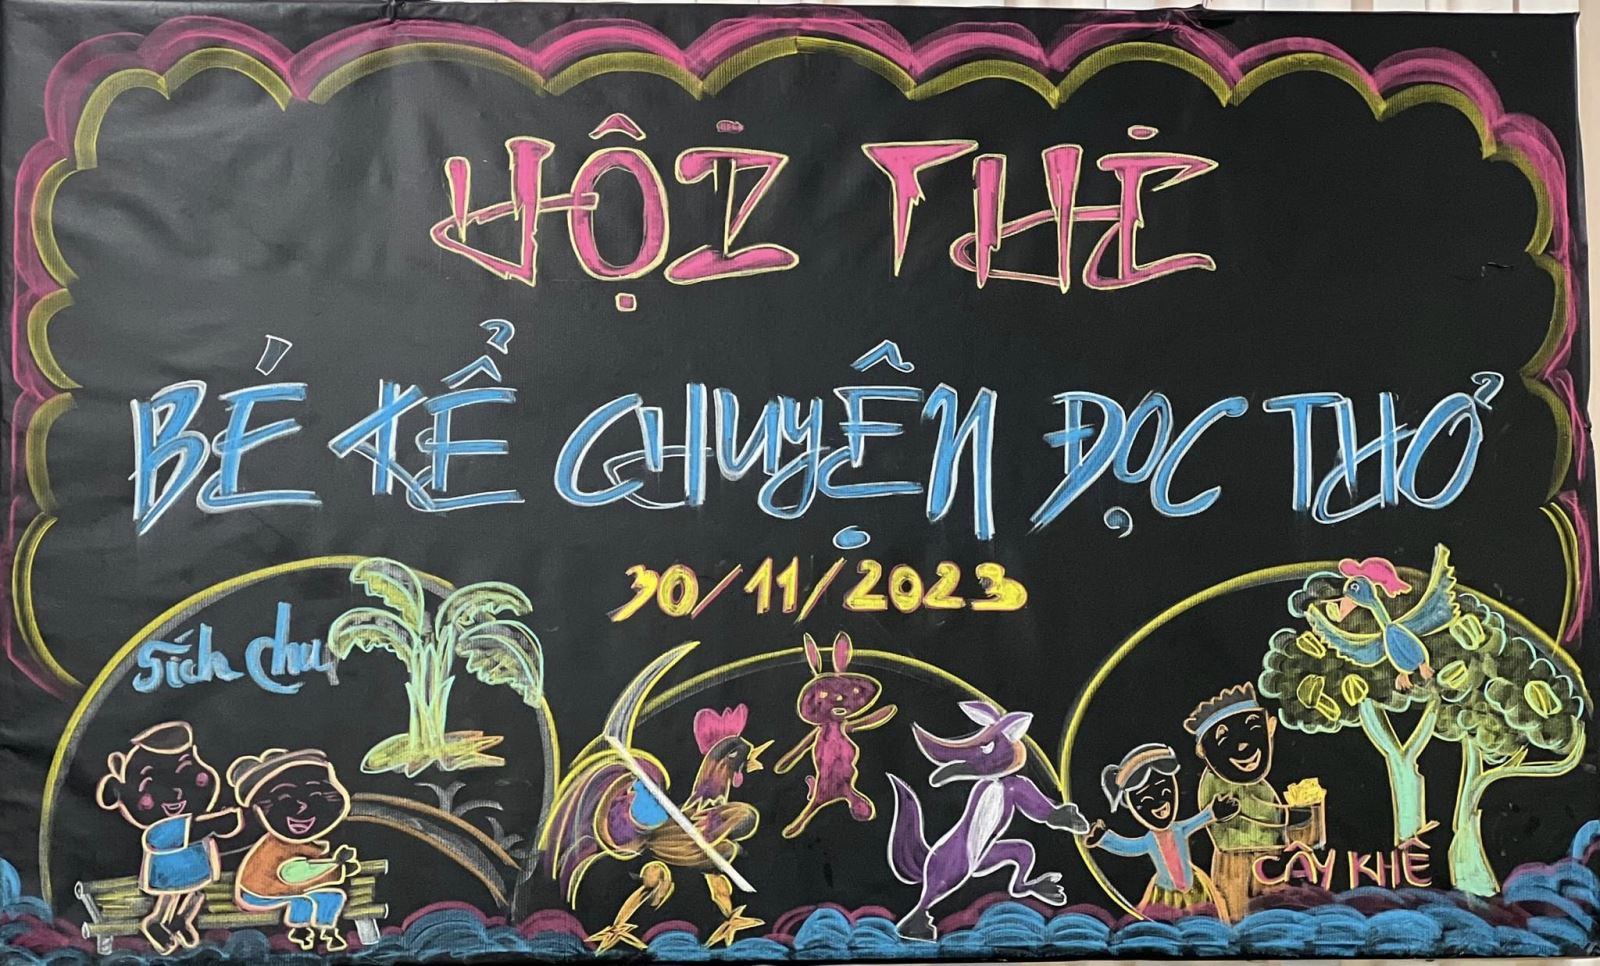 HỘI THI
BÉ KỂ CHUYỆN ĐỌC THƠ
30/11/2023
Sích chu
CÂY KHẾ